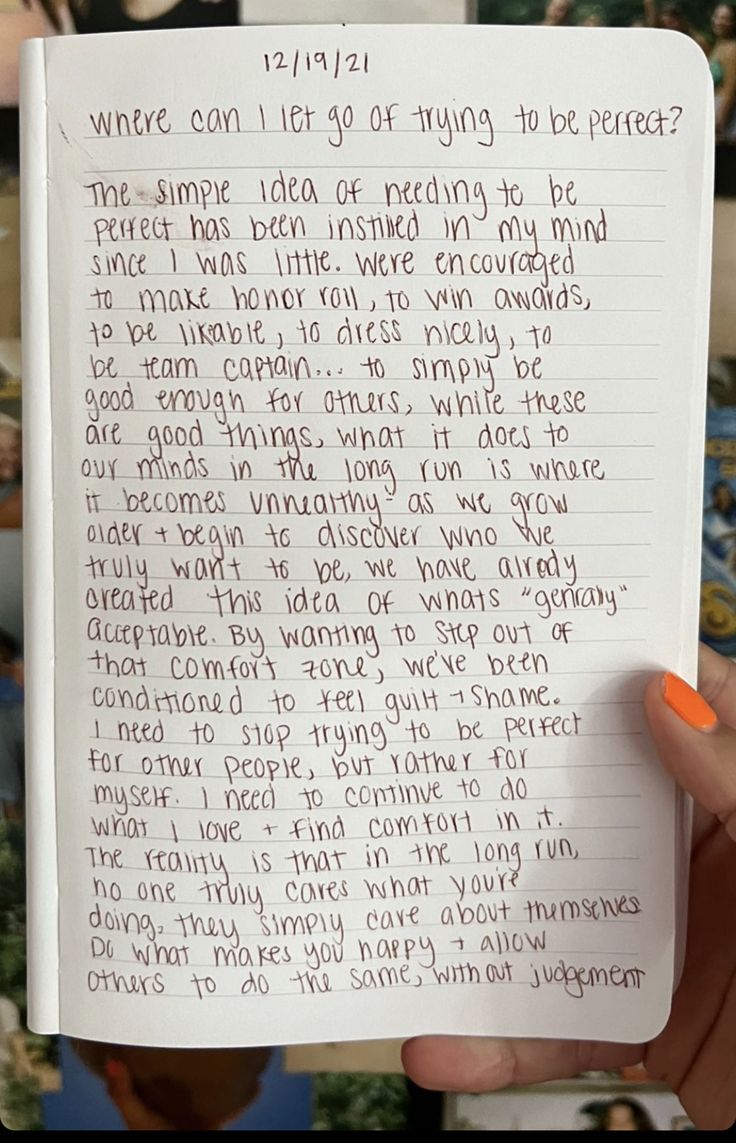 12/19/21
where can I let go of trying to be perfect?
The simple idea of needing to be
perfect has been instilled in my mind
since I was little. Were encouraged
to make honor roll, to win awards,
to be likable, to dress nicely, to
be team captain... to simply be
good enough for others, while these
are good things, what it does to
our minds in the long run is where
it becomes unhealthy - as we grow
older + begin to discover who we
truly want to be, we have alrody
created this idea of whats "genrally"
acceptable. By wanting to step out of
that comfort zone, we've been
conditioned to feel guilt + shame.
I need to stop trying to be perfect
for other people, but rather for
myself. I need to continue to do
what I love + find comfort in it.
The reality is that in the long run,
no one truly cares what you're
doing, they simply care about themselves
Do what makes you happy + allow
others to do the same, without judgement